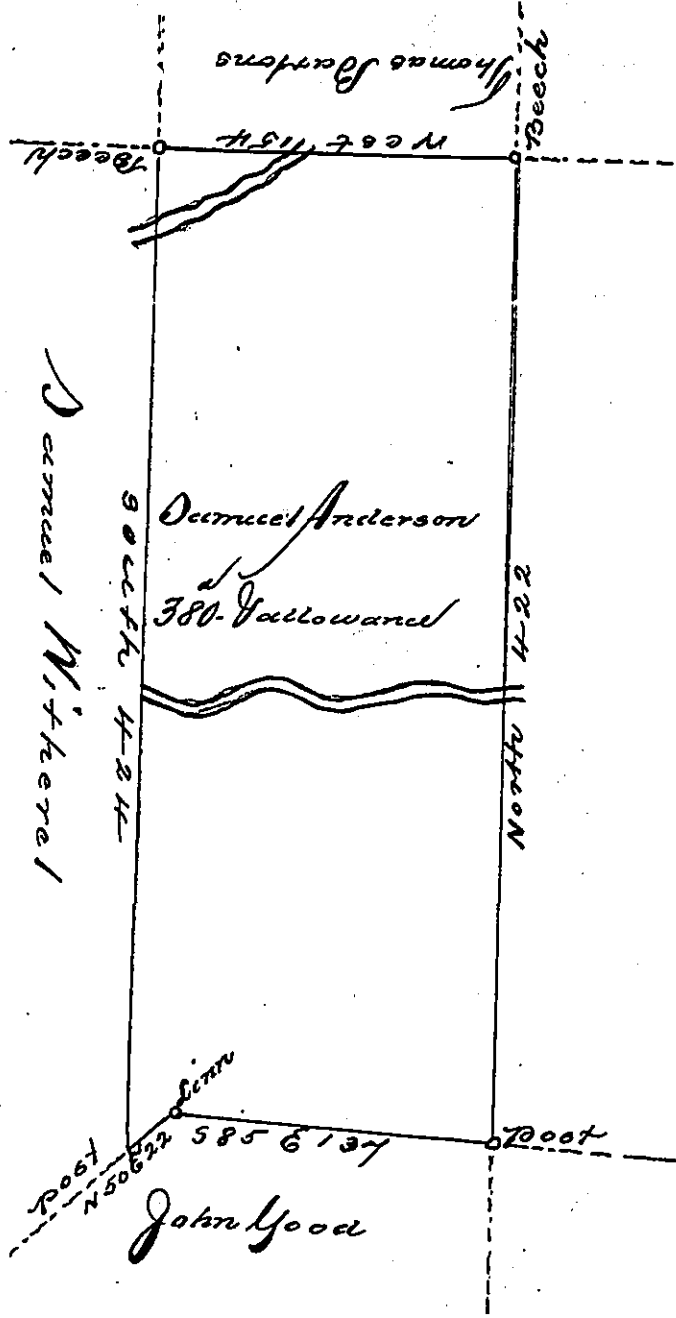 Thomas Bartons
Beech
Beech
West 154
Samuel Witherel
South 424
Samuel Anderson
380. a & allowance
North 422
Linn
Post
N50E22
S85E137
Post
John Good